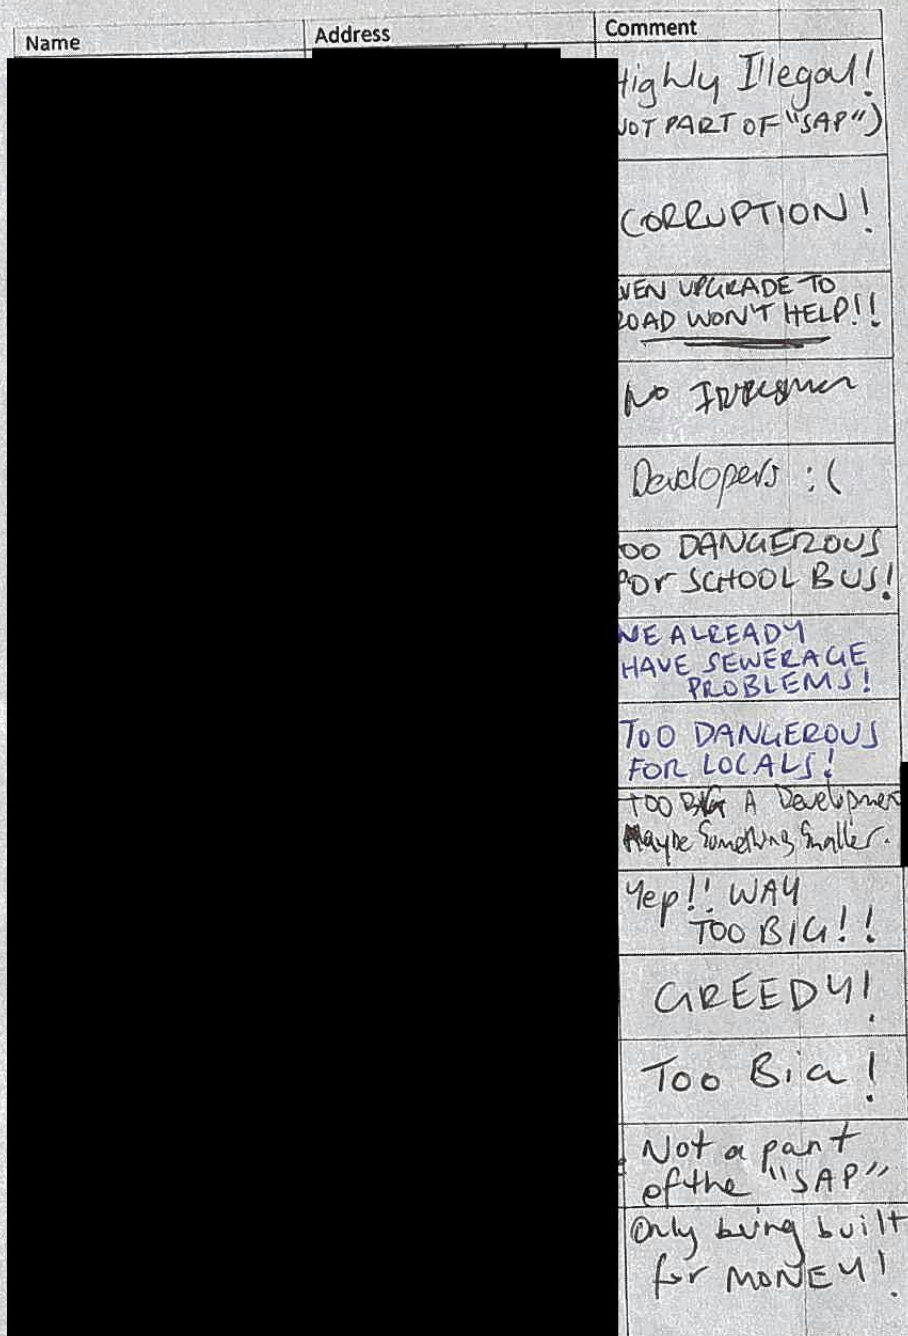 Name Address Comment
Highly Illegal!
NOT PART OF "SAP")
CORRUPTION!
EVEN UPGRADE TO
ROAD WON'T HELP!!
No
Developers :(
TOO DANGEROUS
FOR SCHOOL BUS!
WE ALREADY
HAVE SEWERAGE
PROBLEMS!
TOO DANGEROUS
FOR LOCALS!
TOO BIG A Development
Maybe Something Smaller.
Yep!! WAY
TOO BIG!!
GREEDY!
Too BiG!
Not a part
of the "SAP"
Only being built
for MONEY!